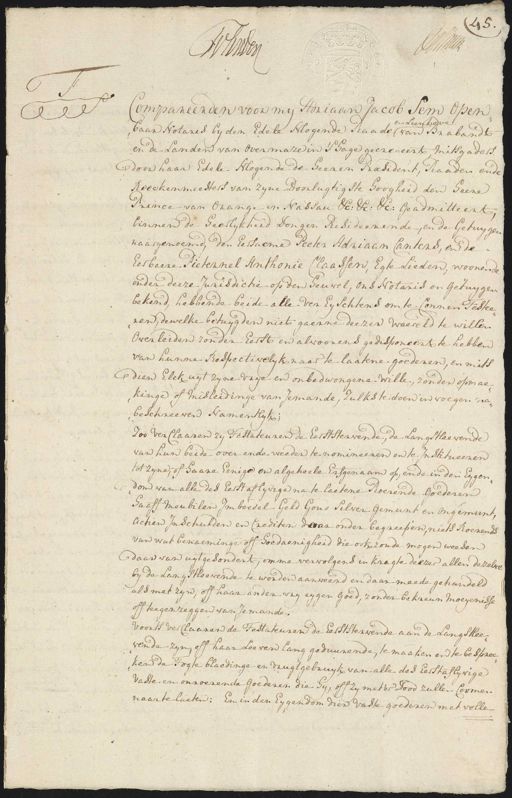 45.
Compareerden voor my Adriaan Jacob Sem Open
baar Notaris by den Edele Mogende Raade van Brabandt
en de Landen van Overmaze in 's Hage gecreeert mitsgaders
door haar Edele Mogende de Heeren President, Raaden ende
Reekenmeesters van zyne Doorlugtigste Hoogheid den Heere
Prince van Orange en Nassau &c: &c: &c: Geadmitteert,
binnen de Heerlykheid Dongen Resideerende, ende Getuygen
naargenoemd, den Eersame Peeter Adriaan Canters, ende
Eerbaere Pieternel Anthonie Claassen, Egte Lieden, woonende
onder deeze Jurisdictie op den Heuvel, ons Notaris en Getuygen
bekend, hebbende beide alle Vereyschtens om te konnen Testee
ren, dewelke betuygden niet gaerne deezer Waereld te willen
Overleiden zonder Eerst en alvoorens gedisponeert te hebben
van hunne Respectivelyk naar te laatene goederen, en mits
dien Elck uyt zyne vrye en onbedwongene Wille, zonder opmae
kinge of misleidinge van Jemande, zulks te doen in voegen na
beschreeven Namentlyk;
Zoo verclaaren zy Testateuren de Eerststervende, de Langstleevende
van hun beide over ende weeder te nomineeren en te Institueeren
tot zyne, of haare Eenige en algeheele Erfgenaam op, ende in den Eygen
dom van alle des Eerstaflyvige na te laetene Roerende Goederen
Haeff Meubelen Inboedel Geld Goud Silver Gemunt en Ongemunt,
Actien Inschulden en Crediten daar onder begreepen, niets Roerends
van wat benaeminge off Hoedaenigheid die ook zoude mogen weesen
daar van uytgesondert, omme vervolgens in kragte deezer allen dezelve
by de Langstleevende te worden aanveerd en daar meede gehandeld
als met zyn, off haar ander vry eygen Goed, zonder bekreun moeyenisse
off teegenzeggen van Jemande.
Voorts verclaarende Testateuren de Eerststervende aan de Langstlee-
vende zyn, off haar Leeven lang geduurende, te maaken en te bespree
ken de Togte bladinge en Vrugtgebruyk van alle des Eerstaflyvige
Vaste en onroerende Goederen die Hy, off Zy met'er Dood zullen Comen
naar te laeten: En in den Eygendom dier Vaste goederen met volle-